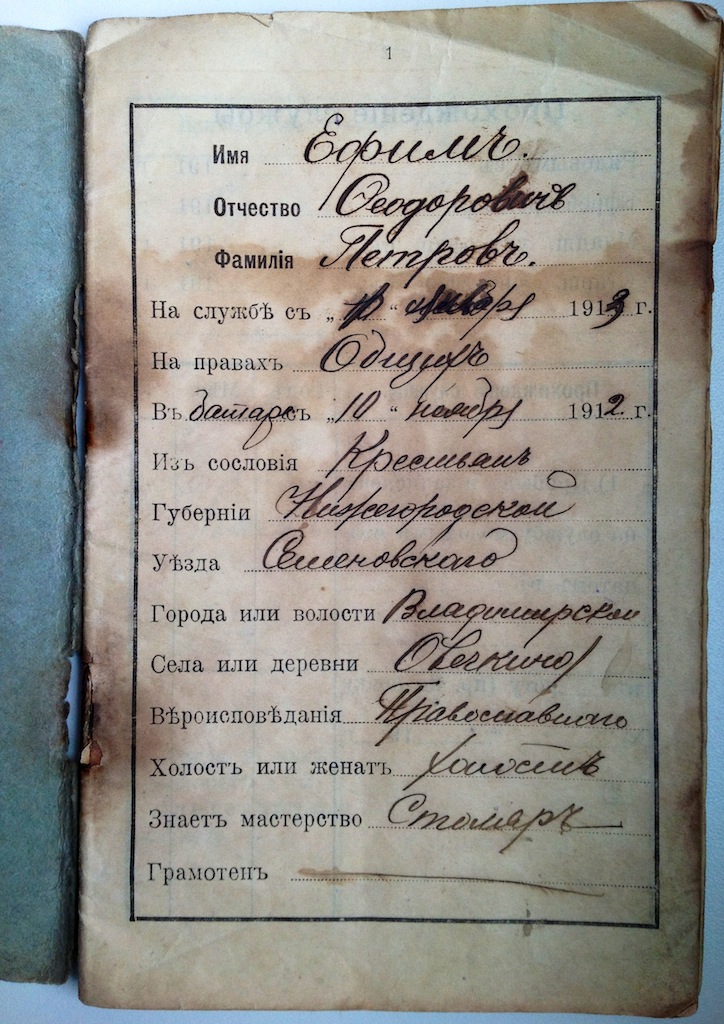 1
Имя Ефимъ.
Отчество Ѳеодоровичъ
Фамилія Петровъ.
На службѣ съ „1“ января 1913 г.
На правахъ Общихъ
Въ батаре съ „10“ ноября 1912 г.
Изъ сословія Крестьянъ
Губерніи Нижегородской
Уѣзда Семеновскаго
Города или волости Владимирской
Села или деревни Овечкино
Вѣроисповѣданія Православнаго
Холостъ или женатъ холостъ
Знаетъ мастерство Столяръ
Грамотенъ